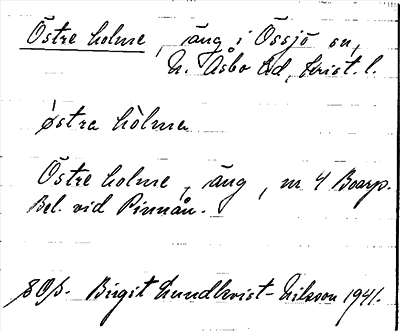 Östre holme, äng i Össjö sn,
N. Åsbo hd, Krist. l.
östra hòlmen
Östre holme, äng, nr 4 Boarp.
Bel. vid Pinnån.
Birgit Lundkvist-Nilsson 1941.